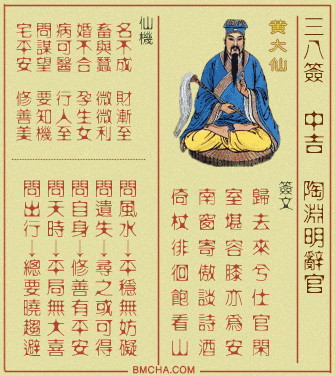 三八簽 中吉 陶淵明辭官
黃大仙
簽文
歸去來兮仕官閑
室堪容膝亦為安
南窗寄傲談詩酒
倚杖徘徊飽看山
仙機
名不成 財漸至
畜與蠶 微微利
婚不合 孕生女
病可醫 行人至
問謀望 要知機
宅平安 修善美
問風水→平穩無妨礙
問遺失→尋之或可得
問自身→修善有平安
問天時→平局無大喜
問出行→總要曉趨避
BMCHA.COM